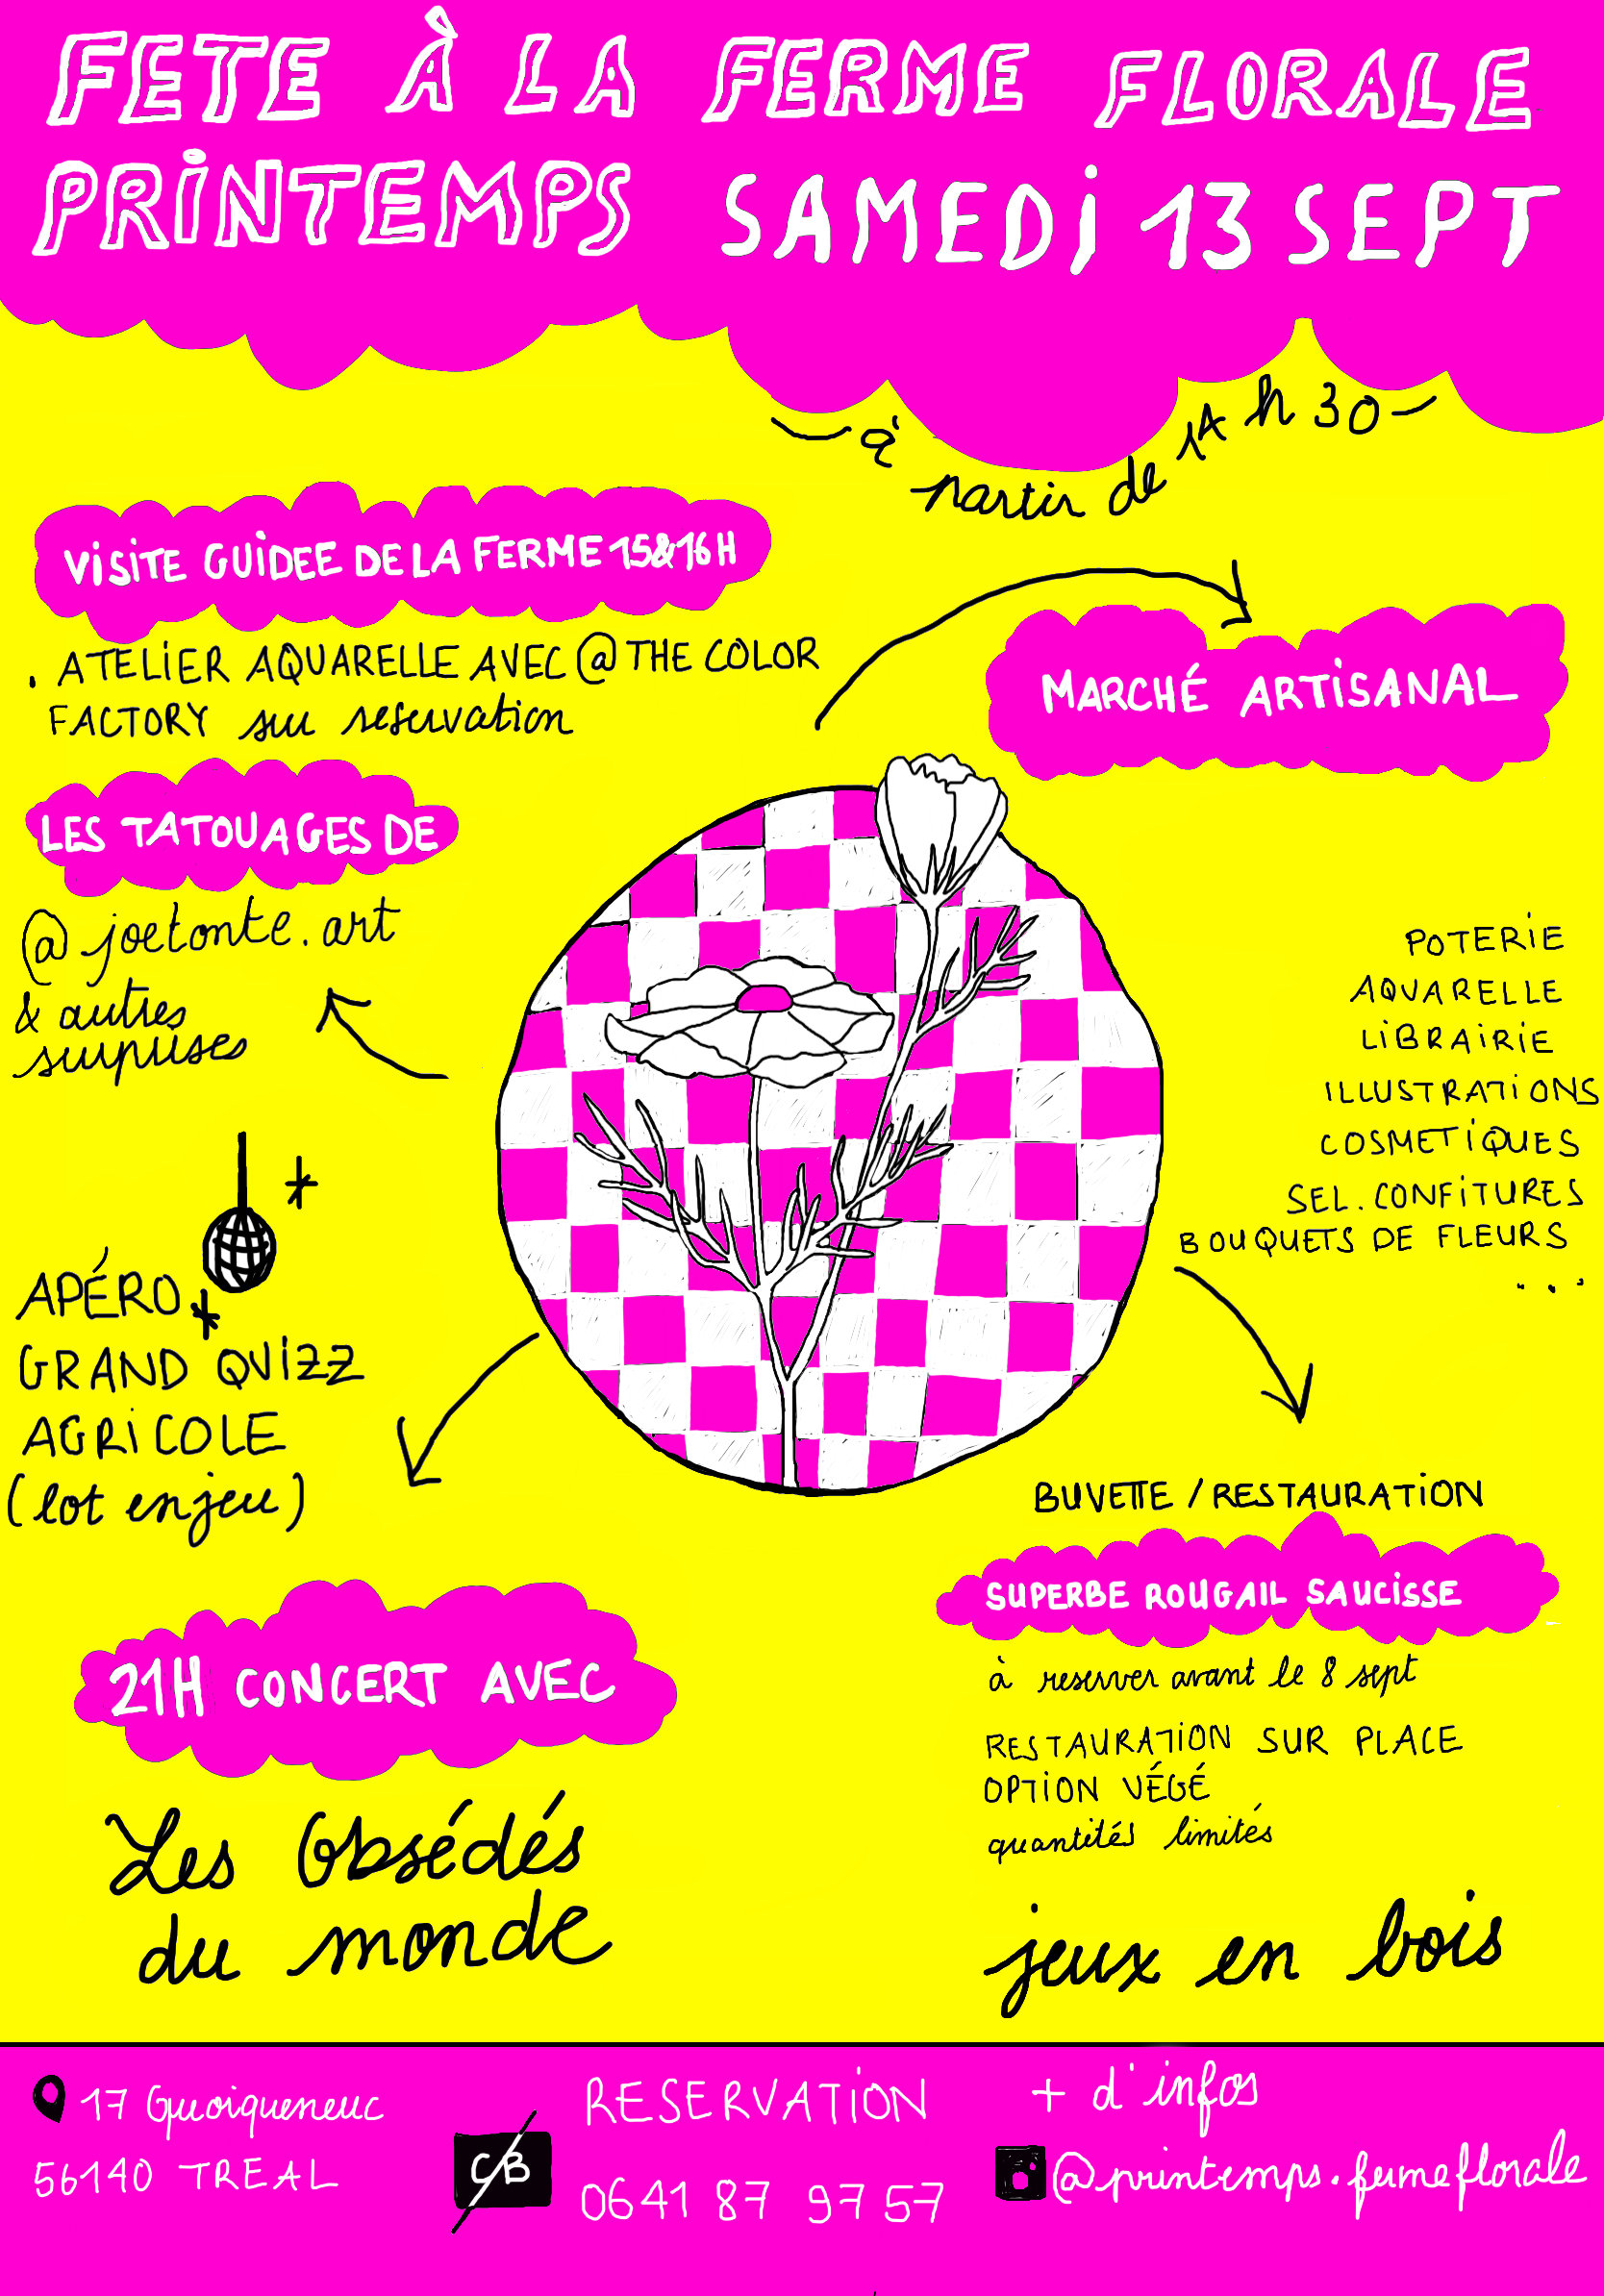 FETE À LA FERME FLORALE
PRINTEMPS SAMEDI 13 SEPT
à partir de 14 h 30
VISITE GUIDEE DE LA FERME 15&16H
. ATELIER AQUARELLE AVEC @THE COLOR
FACTORY sur reservation
LES TATOUAGES DE
@joetonte.art
& autres
surprises
MARCHÉ ARTISANAL
POTERIE
AQUARELLE
LIBRAIRIE
ILLUSTRATIONS
COSMETIQUES
SEL. CONFITURES
BOUQUETS DE FLEURS
...
APÉRO
GRAND QUIZZ
AGRICOLE
(lot enjeu)
BUVETTE / RESTAURATION
SUPERBE ROUGAIL SAUCISSE
à reserver avant le 8 sept
RESTAURATION SUR PLACE
OPTION VÉGÉ
quantités limités
21H CONCERT AVEC
Les Obsédés
du monde
jeux en bois
17 Quoiqueneuc
56140 TREAL
CB
RESERVATION
0641 87 97 57
+ d'infos
@printemps.fermeflorale